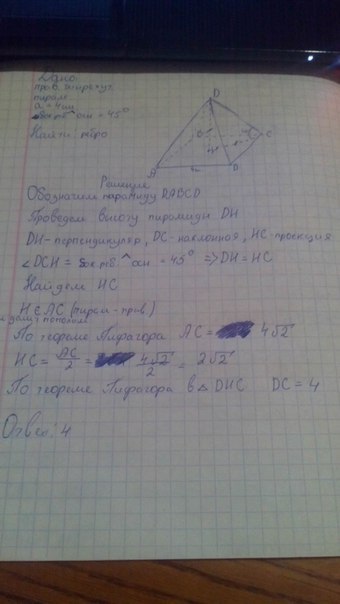 Дано:
прав. четырехуг.
пирам.
a = 4см
бок рб ^ осн = 45°
Найти: ребро
D
B
C
H
A
4
D
Решение
Обозначим пирамиду DABCD
Проведем высоту пирамиды DH
DH - перпендикуляр, DC - наклонная, HC - проекция
∠DCH = бок рб ^ осн = 45° => DH = HC
Найдем HC
H ∈ AC (пирам - прав)
и делит пополам
По теореме Пифагора AC = 4√2
HC = AC/2 = 4√2/2 = 2√2
По теореме Пифагора в △ DHC DC = 4
Ответ: 4